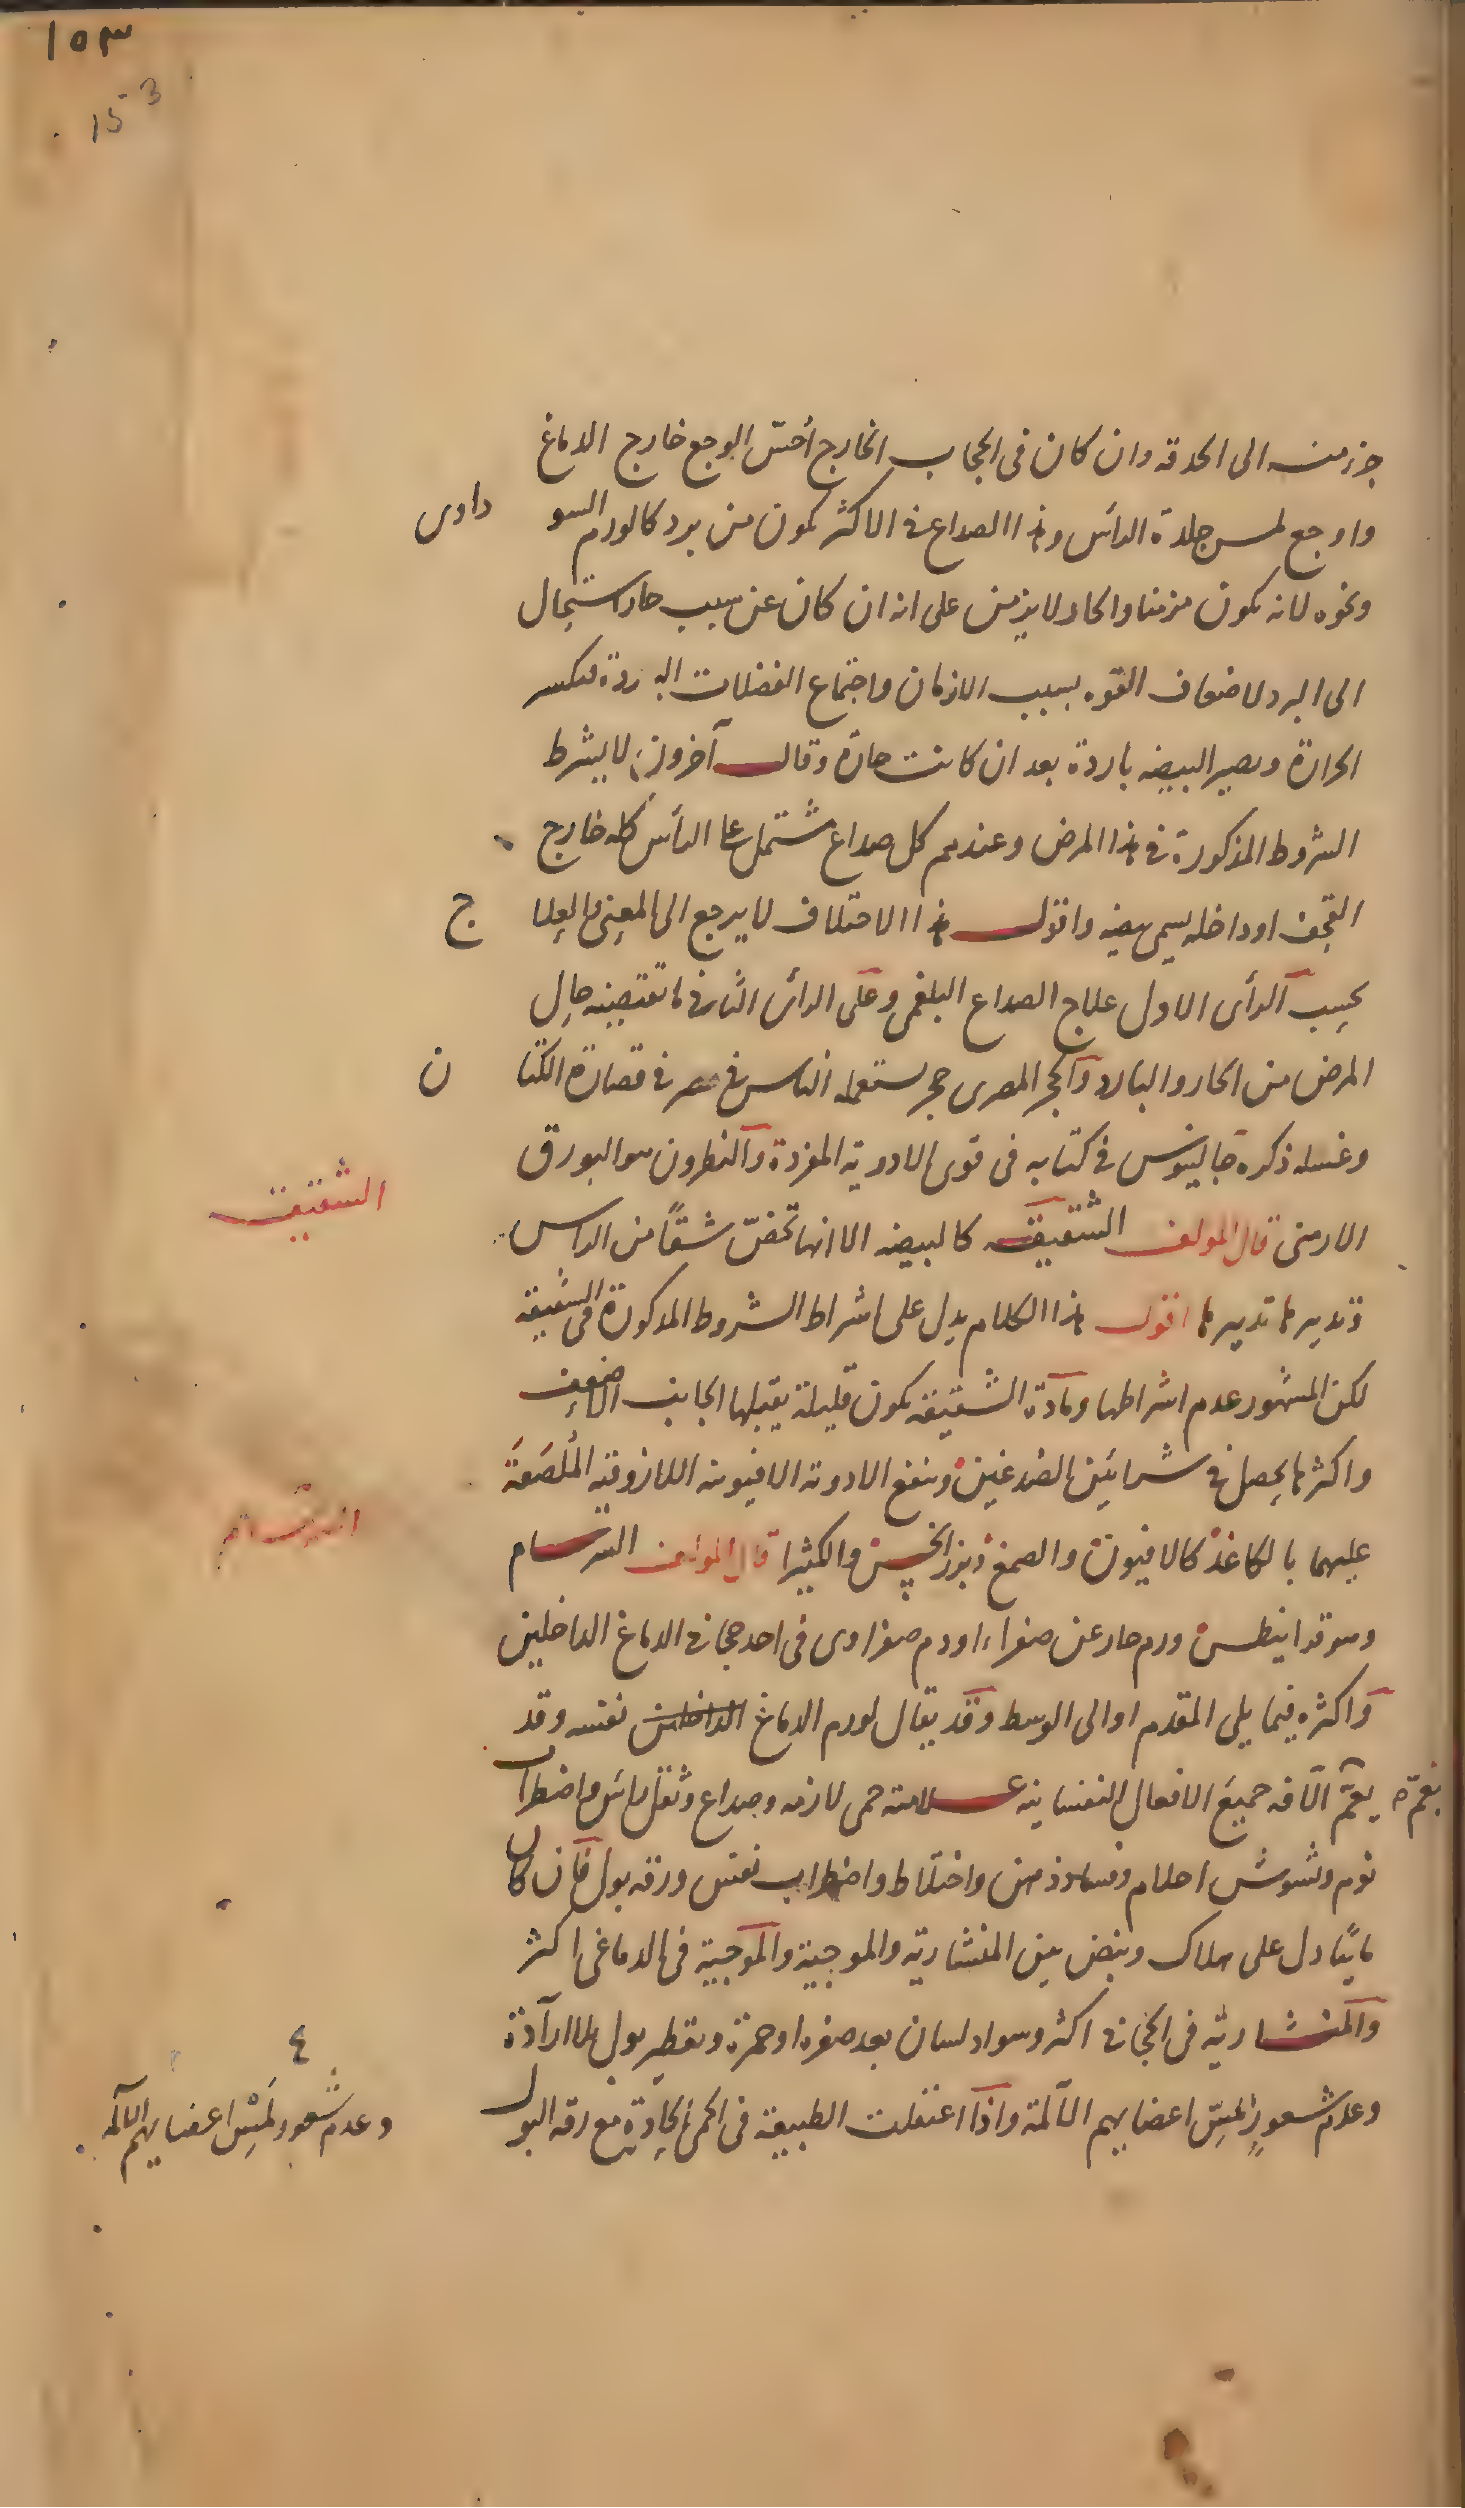 ١٥٣
153
جزء منه الى الحدقة وان كان فى الحجاب الخارج أحس الوجع خارج الدماغ
واوجع لمس جلدة الرأس وهذا الصداع فى الاكثر يكون من برد كالورم السوداوى
ونحوه لانه يكون مزمنا والحار لا يزمن على انه ان كان عن سبب حار استحال
الى البرد لاضعاف القوه بسبب الازمان واجتماع الفضلات الباردة فيكسر
الحرارة ويصير البيضه باردة بعد ان كانت حارة وقال آخرون لا يشرط
الشروط المذكورة فى هذا المرض وعندهم كل صداع مشتمل على الرأس كله خارج
القحف او داخله يسمى بيضه واقول هذا الاختلاف لا يرجع الى المعنى فالعلاج
بحسب الرأى الاول علاج الصداع البلغمى وعلى الرأى الثانى ما تقتضيه حال
المرض من الحار والبارد والحجر المصرى حجر يستعمله الناس فى مصر فى قصارة الكتان
وغسله ذكره جالينوس فى كتابه فى قوى الادوية المفردة والنطرون هو البورق
الارمنى قال المولف الشقيقه كالبيضه الا انها تخصّ شقاً من الراس
الشقيقه
وتدبيرها تدبيرها اقول هذا الكلام يدل على اشراط الشروط المذكورة فى الشقيقه
لكن المشهور عدم اشراطها ومادة الشقيقه يكون قليلة يقبلها الجانب الاضعف
واكثر ما يحصل فى شرايين الصدغين وينفع الادوية الافيونيه اللازوقيه المُلصَقَة
عليهما بالكاغذ كالافيون والصمغ وبزر الخس والكثيرا قال المولف السرسام
السرسام
وهو قرانيطس ورم حار عن صفراء او دم صفراوى فى احد حجابى الدماغ الداخلين
واكثره فيما يلى المقدم او الى الوسط وقد يقال لورم الدماغ الداخلين نفسه وقد
يعمّ الآفه جميع الافعال النفسانيه علامته حمى لازمه وصداع وثقل رأس واضطراب
نوم وتشوش احلام وفساد ذهن واختلاط واضطراب نفس ورقه بول فان كان
مائيًا دل على هلاك ونبض بين المنشارية والموجية والموجية فى الدماغى اكثر
والمنشاريّة فى الحجابى اكثر وسواد لسان بعد صفره او حمرة وتقطير بول بلا ارادة
وعدم شعور لمسّ اعضايهم الآلمة واذا اعتقلت الطبيعة فى الحمى الحادة مع رقه البول
٤
وعدم شعور لمسّ اعضايهم الآلمه